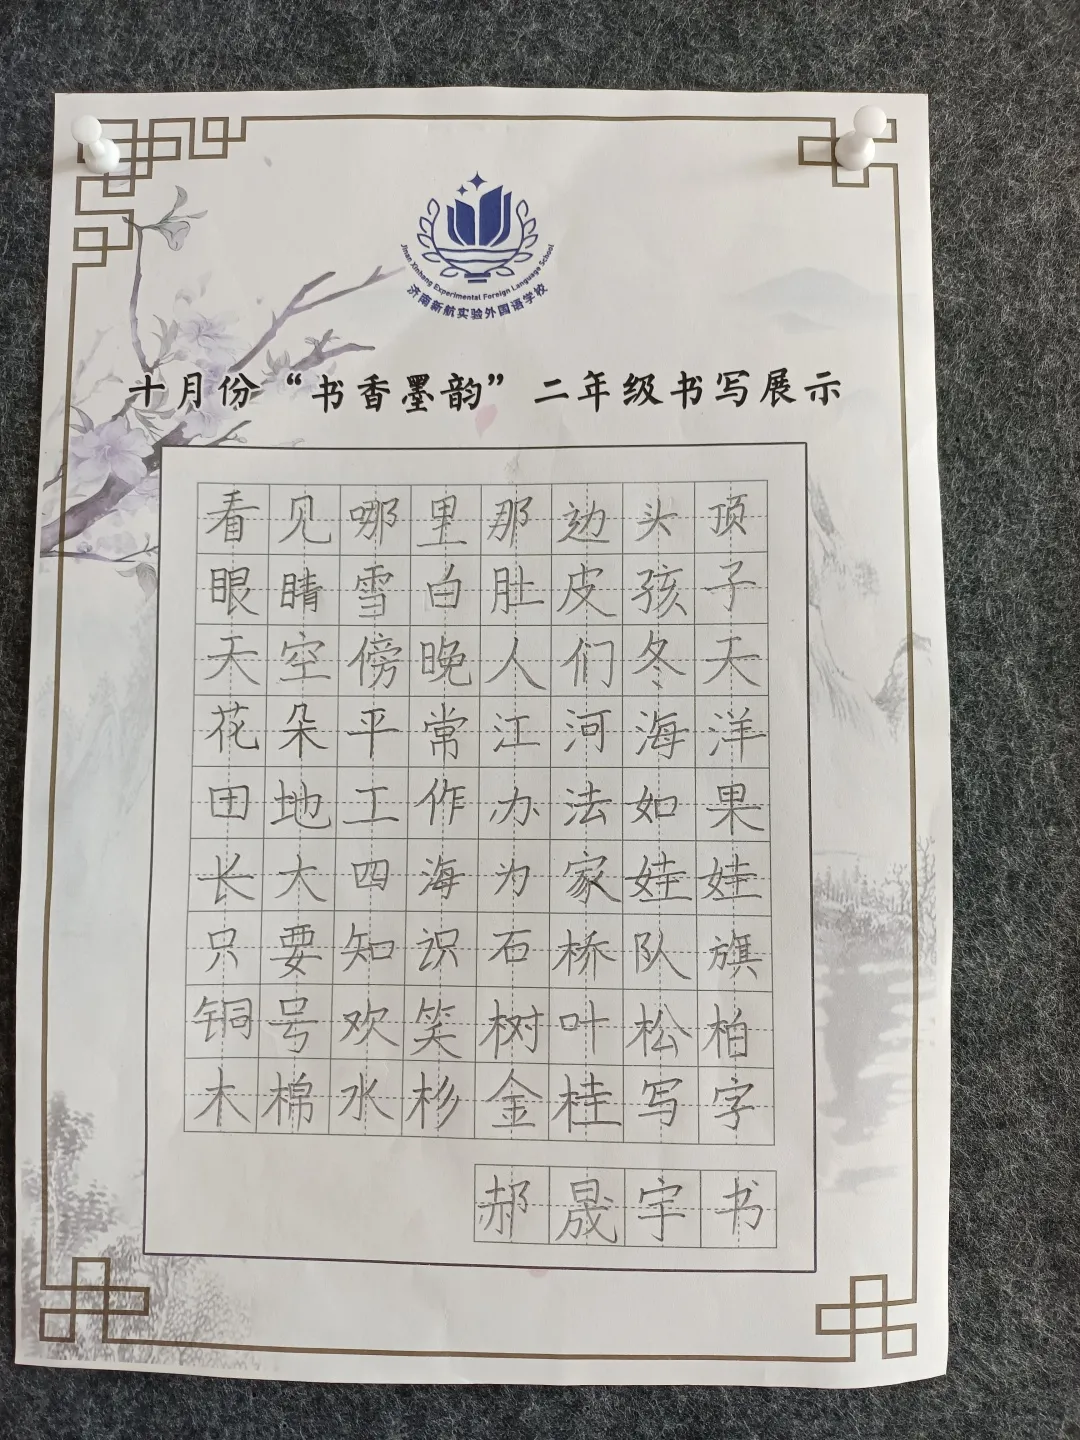 Jinan Xinhang Experimental Foreign Language School
济南新航实验外国语学校
十月份“书香墨韵”二年级书写展示
看见哪里那边头顶
眼睛雪白肚皮孩子
天空傍晚人们冬天
花朵平常江河海洋
田地工作办法如果
长大四海为家娃娃
只要知识石桥队旗
铜号欢笑树叶松柏
木棉水杉金桂写字
郝晟宇书